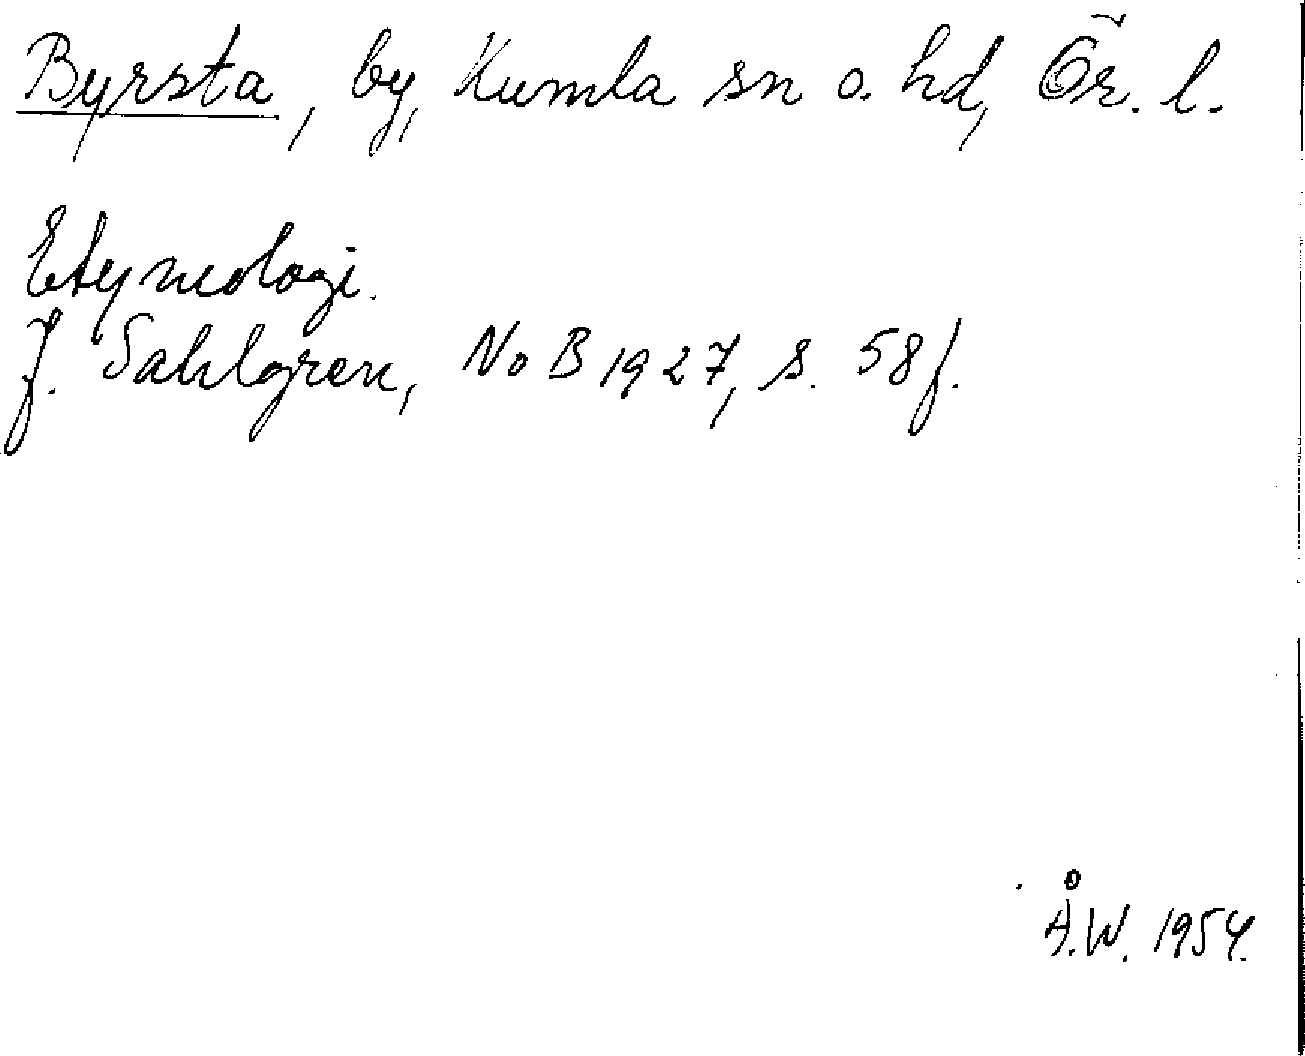 Byrsta, by, Kumla sn o. hd, Ör. l.
Etymologi.
J. Sahlgren, NoB 1927, s. 58 f.
Å.W. 1954.